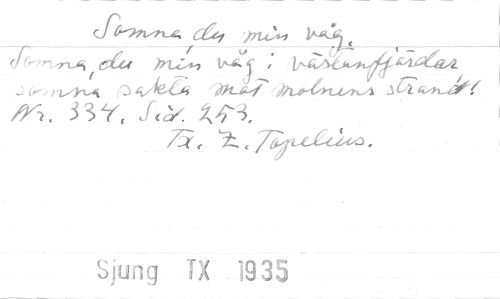 Somna, du min våg.
Somna, du min våg i västanfjärdar
somna sakta mot molnens strand!
Nr. 334. Sid. 253.
Tx. Z. Topelius.
Sjung TX 1935